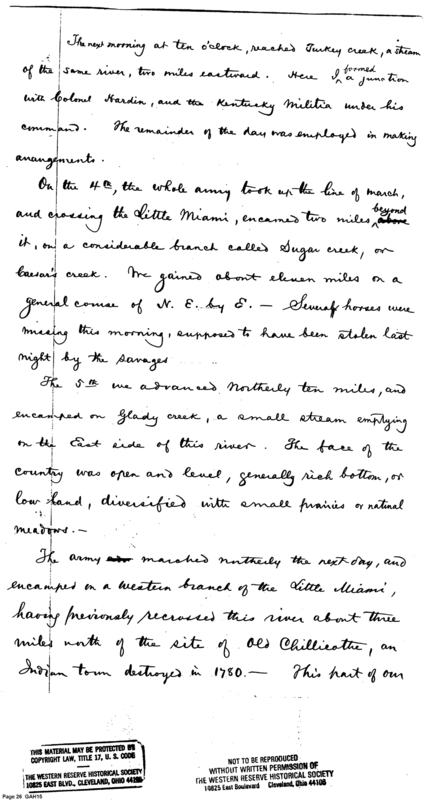 The next morning at ten o'clock, reached Turkey creek, a stream
of the same river, two miles eastward. Here I formed a junction
with Colonel Hardin, and the Kentucky Militia under his
command. The remainder of the day was employed in making
arrangements.
On the 4th, the whole army took up the line of march,
and crossing the Little Miami, encamed two miles above beyond
it, on a considerable branch called Sugar creek, or
Caesar's creek. We gained about eleven miles on a
general course of N. E. by E. — Several horses were
missing this morning, supposed to have been stolen last
night by the savages
The 5th we advanced Northerly ten miles, and
encamped on Glady creek, a small stream emptying
on the East side of this river. The face of the
country was open and level, generally rich bottom, or
low land, diversified with small prairies or natural
meadows. —
The army marched northerly the next day, and
encamped on a western branch of the Little Miami,
having previously recrossed this river about three
miles north of the site of Old Chillicothe, an
Indian town destroyed in 1780. — This part of our
THIS MATERIAL MAY BE PROTECTED BY
COPYRIGHT LAW, TITLE 17, U. S. CODE
THE WESTERN RESERVE HISTORICAL SOCIETY
10825 EAST BLVD., CLEVELAND, OHIO 44106
NOT TO BE REPRODUCED
WITHOUT WRITTEN PERMISSION OF
THE WESTERN RESERVE HISTORICAL SOCIETY
10825 East Boulevard Cleveland, Ohio 44106
Page 26 GAH15